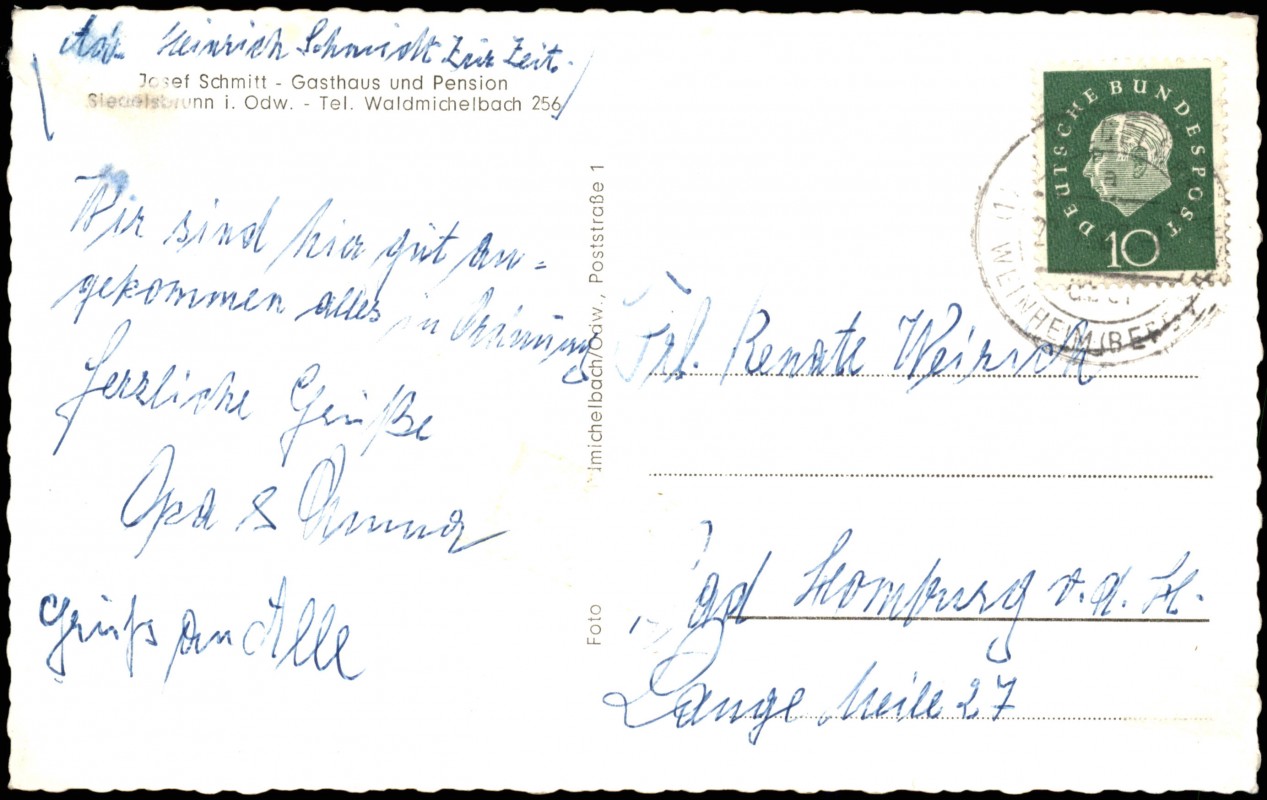 Adr. Heinrich Schmidt Zur Zeit.
Josef Schmitt - Gasthaus und Pension
Siedelsbrunn i. Odw. - Tel. Waldmichelbach 256
Wir sind hier gut an=
gekommen alles in Ordnung
Herzliche Grüße
Opa & Anna
Gruß an Alle
Foto
lmichelbach/Odw., Poststraße 1
DEUTSCHE BUNDESPOST
10
WEINHEIM (BERGSTR
Frl. Renate Weirich
Bad Homburg v. d. H.
Lange Meile 27